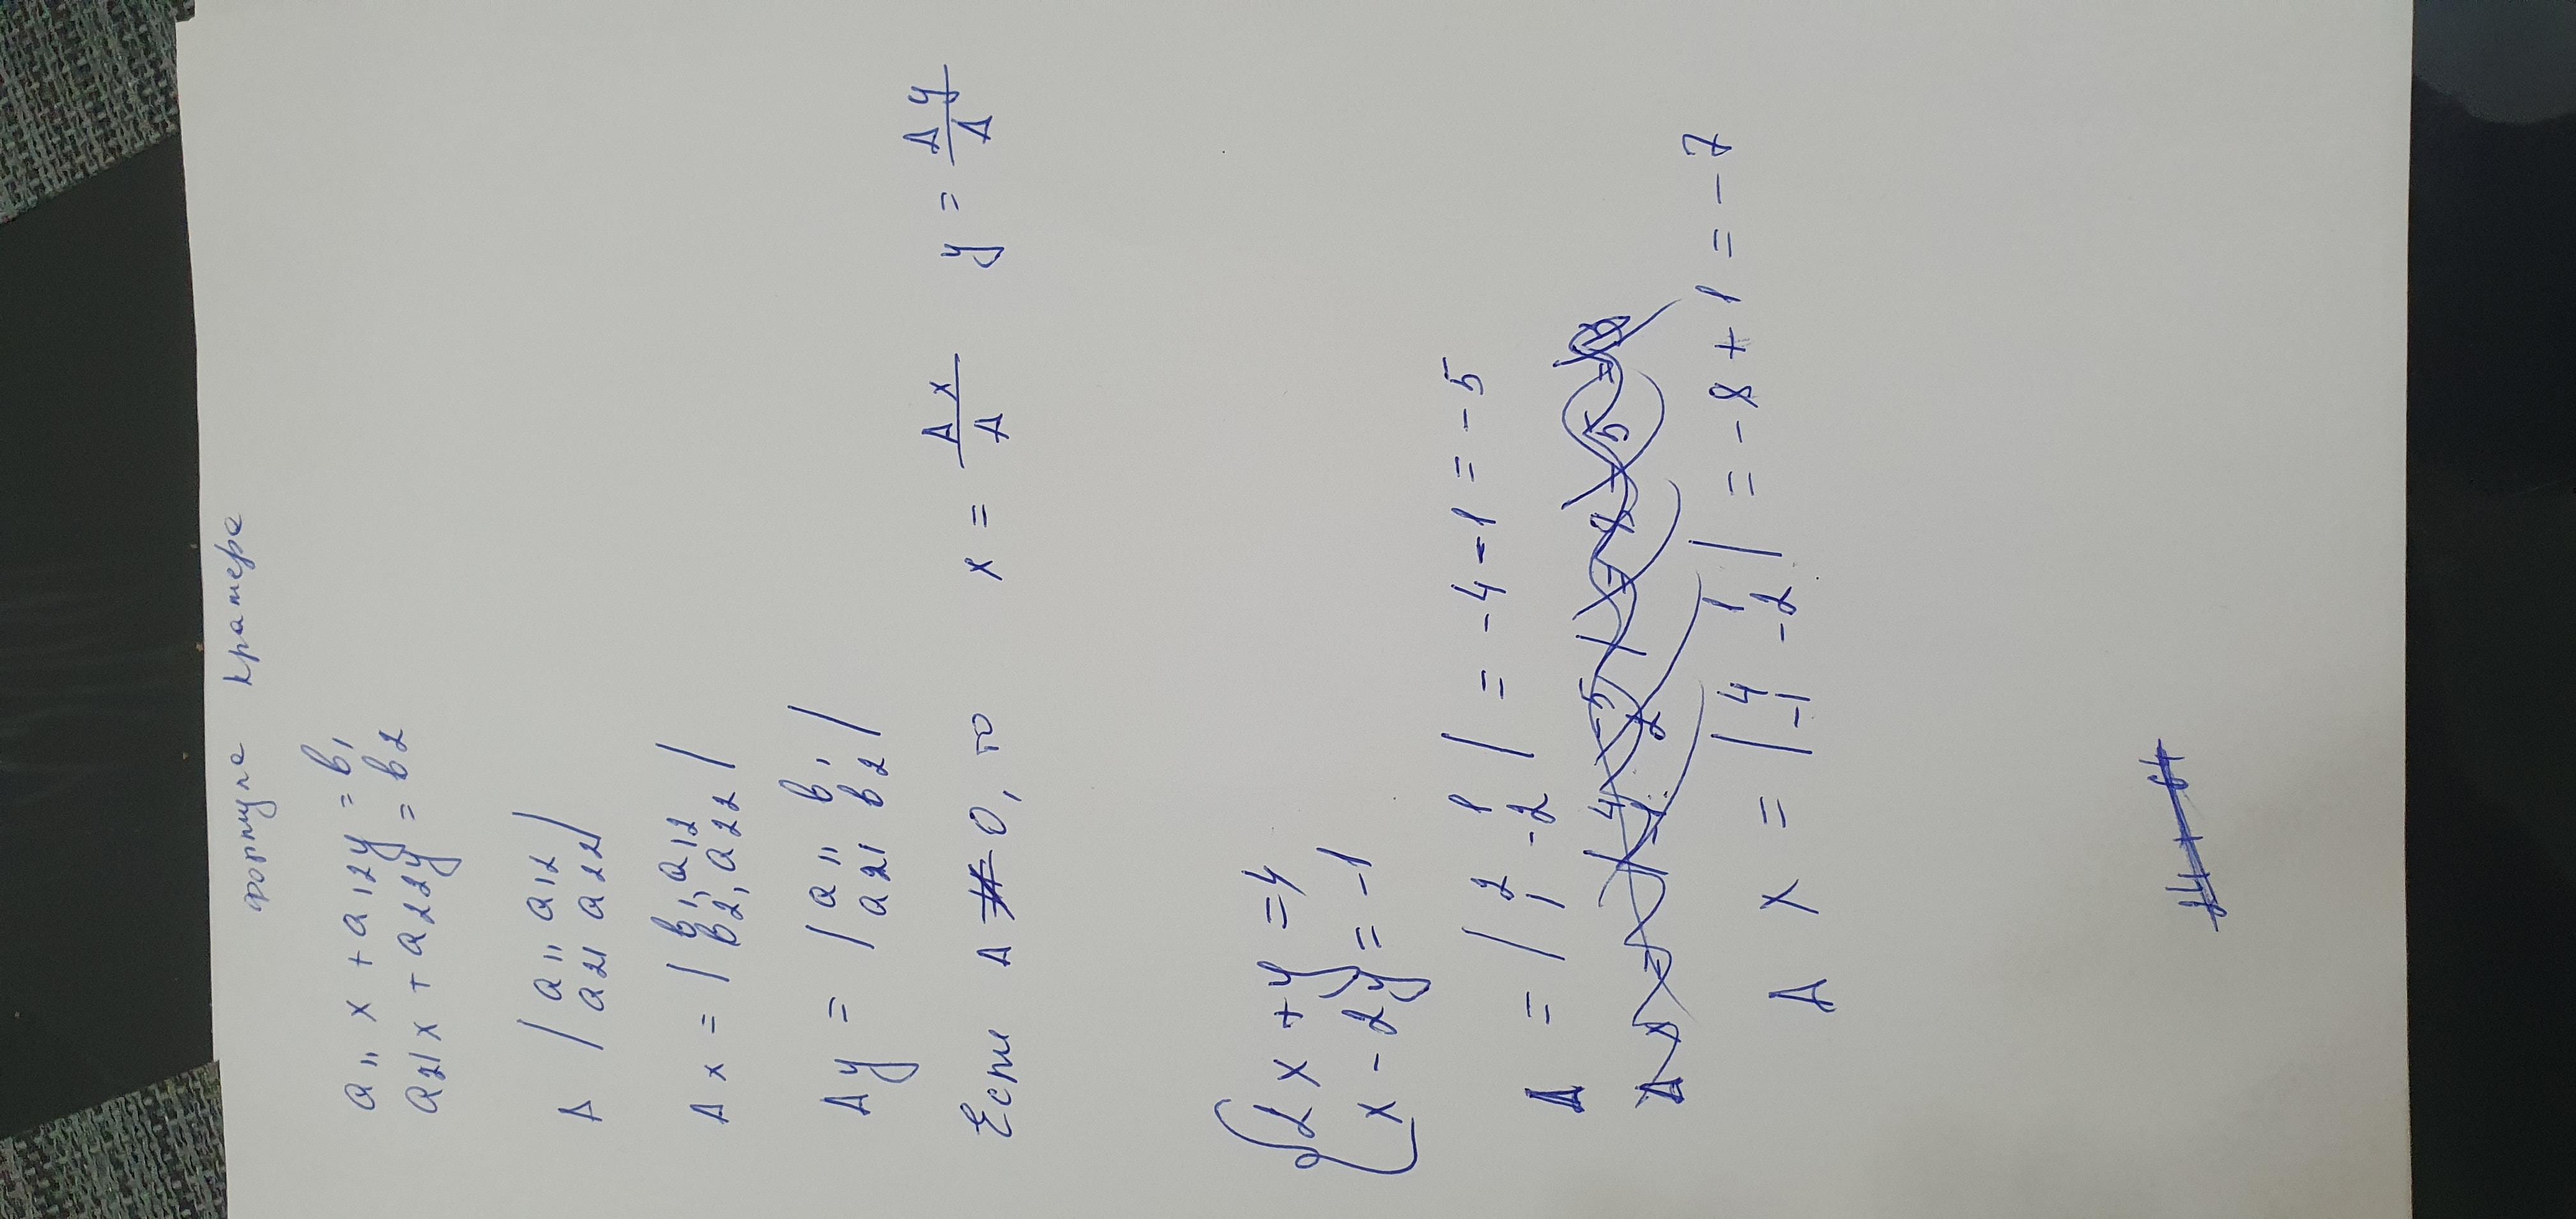 формула Крамера
a₁₁ x + a₁₂ y = b₁
a₂₁ x + a₂₂ y = b₂
Δ | a₁₁ a₁₂ |
| a₂₁ a₂₂ |
Δx = | b₁, a₁₂ |
| b₂, a₂₂ |
Δy = | a₁₁ b₁ |
| a₂₁ b₂ |
Если Δ ≠ 0, то x = Δx/Δ y = Δy/Δ
{ 2x + y = 4
x - 2y = -1
Δ = | 2 1 | = -4 - 1 = -5
| 1 -2 |
Δx = | 4 1 | = -8 + 1 = -7
| -1 -2 |